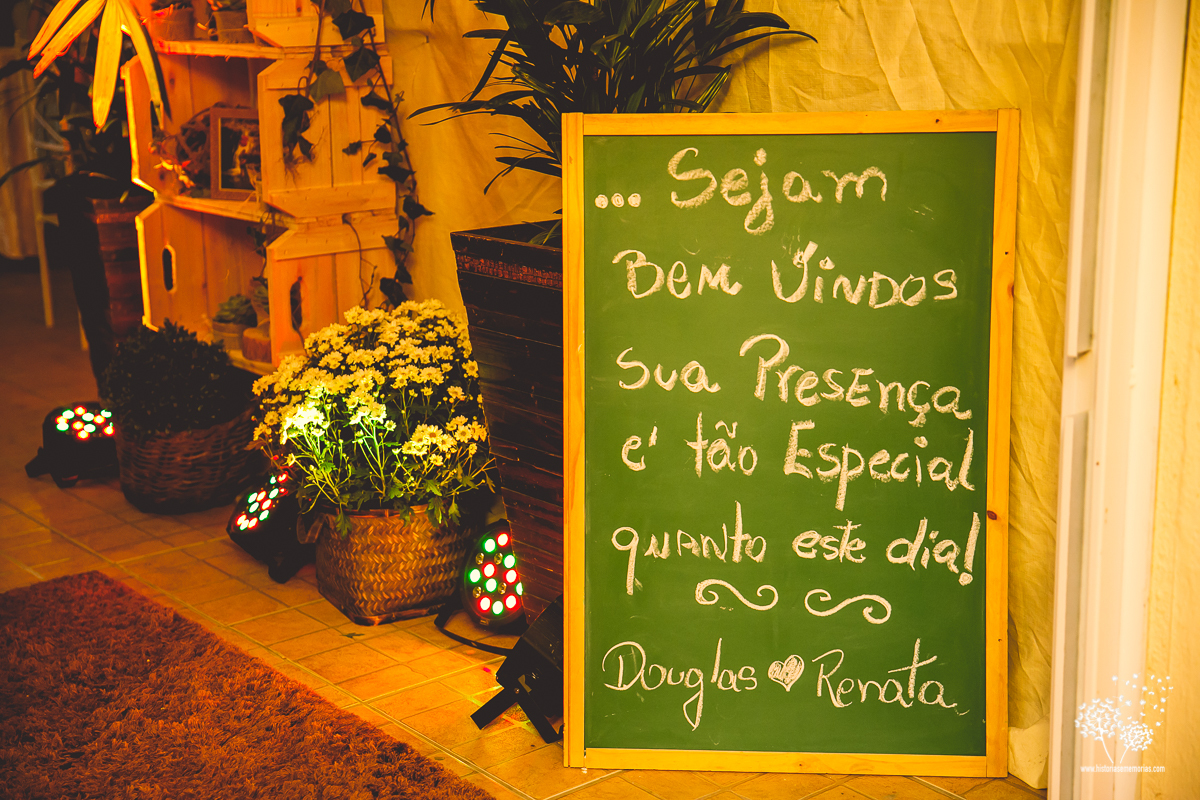 ... Sejam
Bem Vindos
sua Presença
é tão Especial
quanto este dia!
Douglas ♥ Renata
www.historiadememorias.com